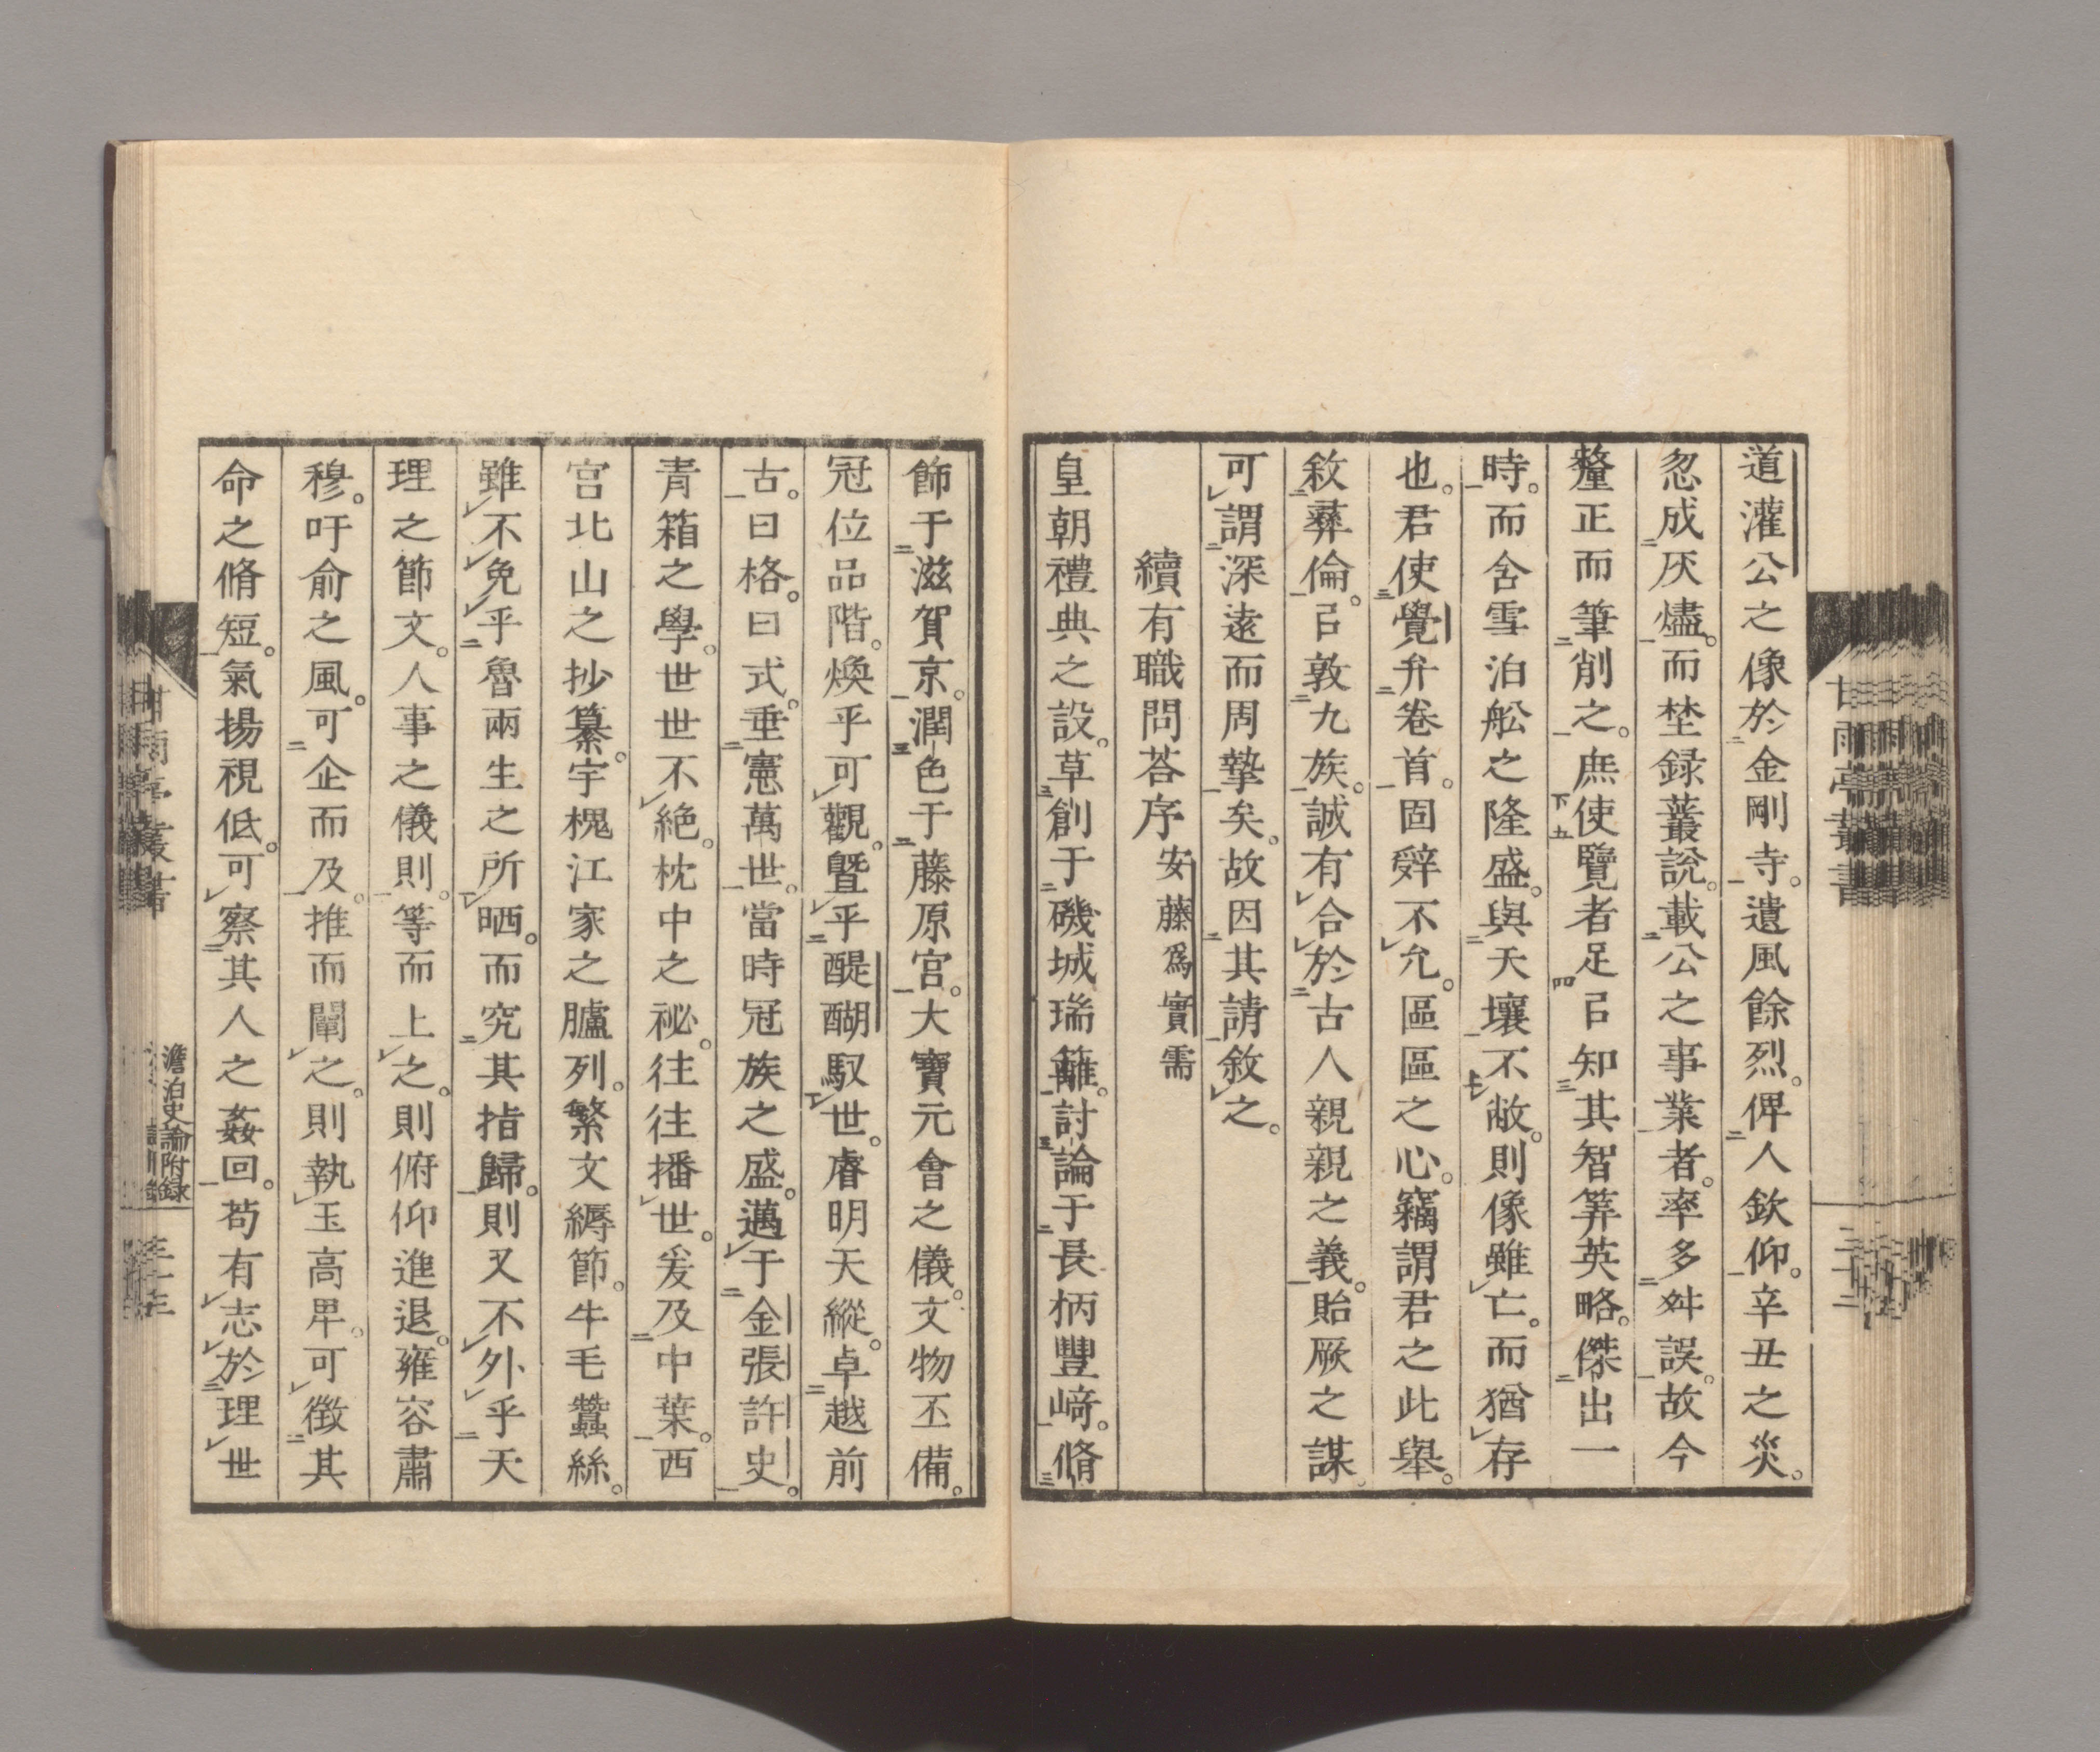 道灌公之像於金剛寺。遺風餘烈。俾人欽仰。辛丑之災。
忽成灰燼。而埜録叢說。載公之事業者。率多舛誤。故今
釐正而筆削之。庶使覽者足㠯知其智筭英略。傑出一
時。而舍雪泊舩之隆盛。與天壤不敝。則像雖亡。而猶存
也。君使覺弁卷首。固辤不允。區區之心。竊謂君之此舉。
敘彝倫。㠯敦九族。誠有合於古人親親之義。貽厥之謀。
可謂深遠而周摯矣。故因其請敘之。
續有職問荅序 安藤爲實需
皇朝禮典之設。草創于磯城瑞籬。討論于長柄豐﨑。脩
飾于滋賀京。潤色于藤原宮。大寶元會之儀。文物丕備。
冠位品階。煥乎可觀。曁乎醍醐馭世。睿明天縱。卓越前
古。曰格。曰式。垂憲萬世。當時冠族之盛。邁于金張許史。
青箱之學。世世不絶。枕中之祕。往往播世。爰及中葉。西
宮北山之抄纂。宇槐江家之臚列。繁文縟節。牛毛蠶絲。
雖不免乎魯兩生之所哂。而究其指歸。則又不外乎天
理之節文。人事之儀則。等而上之。則俯仰進退。雍容肅
穆。吁俞之風。可企而及。推而闡之。則執玉高卑。可徴其
命之脩短。氣揚視低。可察其人之姦回。苟有志於理世
甘雨亭叢書
澹泊史論附録